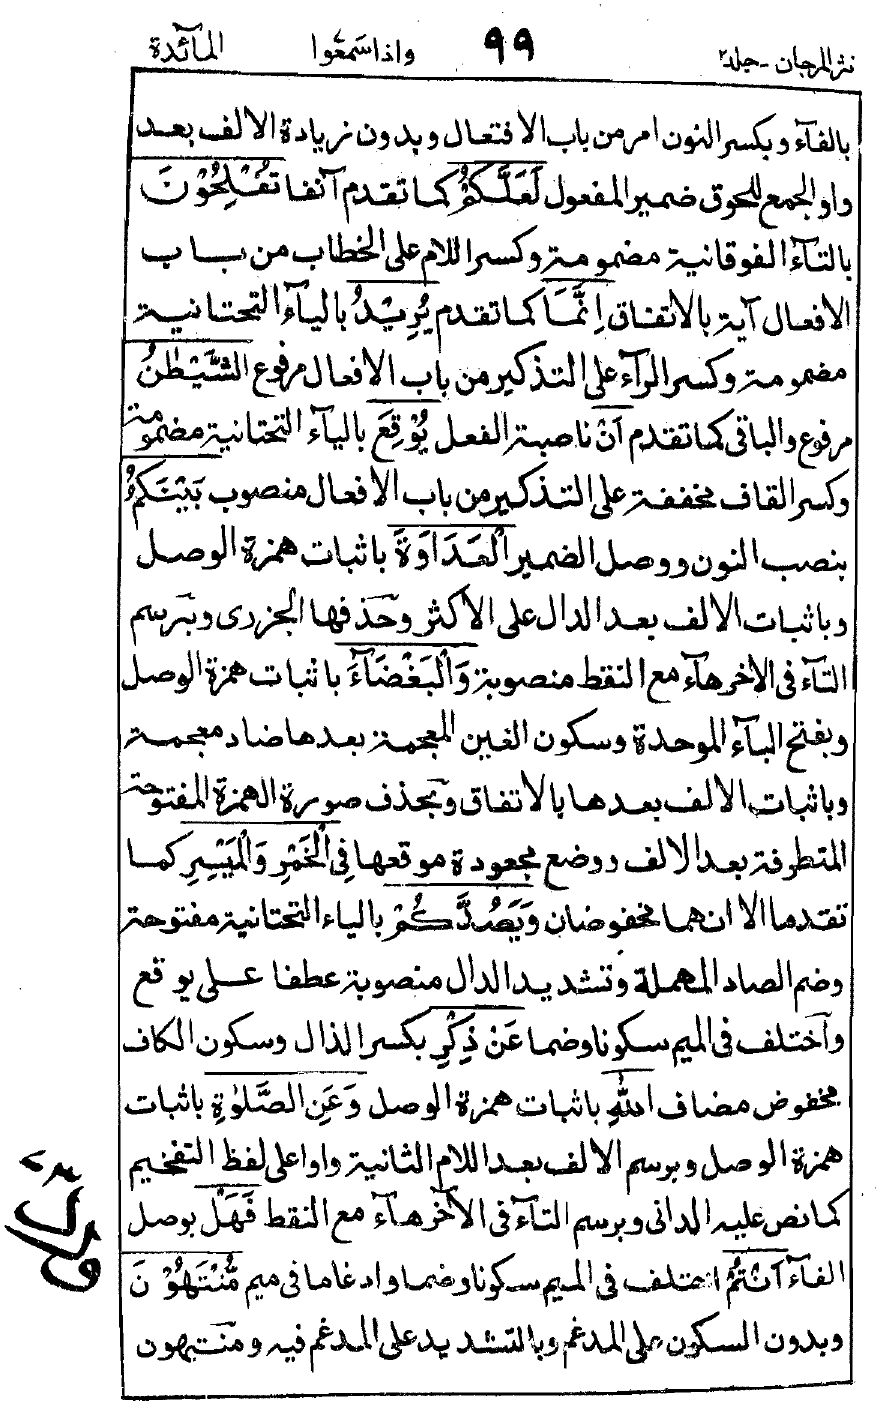 نثر المرجان - جلد ٢ ٩٩ واذا سمعوا المآئدة
بالفآء وبكسر النون امر من باب الافتعال وبدون زيادة الالف بعد
واو الجمع للحوق ضمير المفعول لَعَلَّكُمْ كما تقدم آنفا تُفْلِحُوْنَ
بالتآء الفوقانية مضمومة وكسر اللام على الخطاب من باب
الافعال آية بالاتفاق اِنَّمَا كما تقدم يُرِيْدُ بالياء التحتانية
مضمومة وكسر الرآء على التذكير من باب الافعال مرفوع الشَّيْطٰنُ
مرفوع والباقى كما تقدم اَنْ ناصبة الفعل يُوْقِعَ بالياء التحتانية مضمومة
وكسر القاف مخففة على التذكير من باب الافعال منصوب بَيْنَكُمُ
بنصب النون ووصل الضمير الْعَدَاوَةَ باثبات همزة الوصل
وباثبات الالف بعد الدال على الاكثر وحَذفها الجزرى وبَرسم
التآء فى الاخر هآء مع النقط منصوبة وَالْبَغْضَآءَ باثبات همزة الوصل
وبفتح البآء الموحدة وسكون الغين المعجمة بعدها ضاد معجمة
وباثبات الالف بعدها بالاتفاق وبحذف صورة الهمزة المفتوحة
المتطرفة بعد الالف ووضع مجعودة موقعها فِى الْخَمْرِ وَالْمَيْسِرِ كما
تقدما الا انهما مخفوضان وَيَصُدَّكُمْ بالياء التحتانية مفتوحة
وضم الصاد المهملة وتشديد الدال منصوبة عطفا على يوقع
وآختلف فى الميم سكونا وضما عَنْ ذِكْرِ بكسر الذال وسكون الكاف
مخفوض مضاف اللّٰهِ باثبات همزة الوصل وَعَنِ الصَّلٰوةِ باثبات
همزة الوصل وبرسم الالف بعد اللام الثانية واوا على لفظ التفخيم
كما نص عليه الدانى وبرسم التآء فى الآخر هآء مع النقط فَهَلْ بوصل
الفآء اَنْتُمْ اختلف فى الميم سكونا وضما وادغاما فى ميم مُّنْتَهُوْنَ
وبدون السكون على المدغم وبالتشديد على المدغم فيه ومنتهون